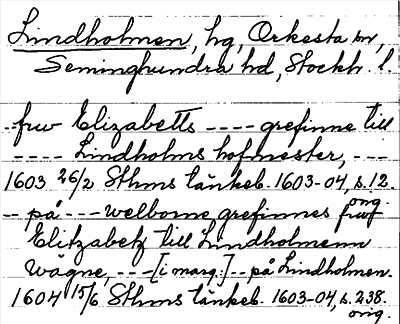 Lindholmen, hg, Orkesta sn,
Seminghundra hd, Stockh. l.
-- fruv Elizabetts ---- grefinne till
---- Lindholms hofmester, ---
1603 26/2 Sthms tänkeb. 1603-04, s. 12.
orig.
-- på --- welborne grefinnes fruf
Elitzabetz till Lindholmenn
wägne, --- [i marg.] -- på Lindholmen.
1604 15/6 Sthms tänkeb. 1603-04, s. 238.
orig.